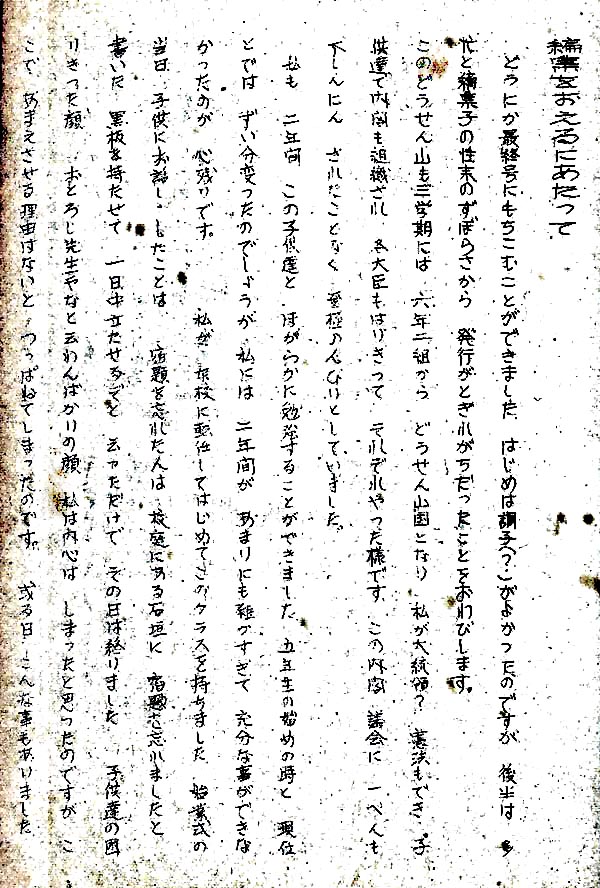 編集をおえるにあたって
どうにか最終号にもちこむことができました はじめは調子(?)がよかったのですが 後半は 多
忙と編集子の性来のずぼらさから 発行がとぎれがちだったことをおわびします。
このどうせん山も三学期には 六年二組から どうせん山国となり 私が大統領? 憲法もでき 子
供達で内閣も組織され 各大臣もはりきって それぞれやった様です この内閣 議会に 一ぺんも
不しんにん されたことなく 至極のんびりとしていました。
私も 二年間 この子供達と ほがらかに勉強することができました 五年生の始めの時と 現在
とでは ずい分変ったのでしようが 私には 二年間が あまりにも短かすぎて 充分な事ができな
かったのが 心残りです。 私が 本校に転任してはじめてこのクラスを持ちました 始業式の
当日 子供にお話しゝしたことは 宿題を忘れた人は 校庭にある石垣に 宿題を忘れましたと
書いた 黒板を持たせて 一日中立たせるぞと 云っただけで その日は終りました 子供達の困
りきった顔 おとろし先生やなと云わんばかりの顔 私は内心は しまったと思ったのですが こ
こで あまえさせる理由はないと つっぱねてしまったのです。 或る日 こんな事もありました